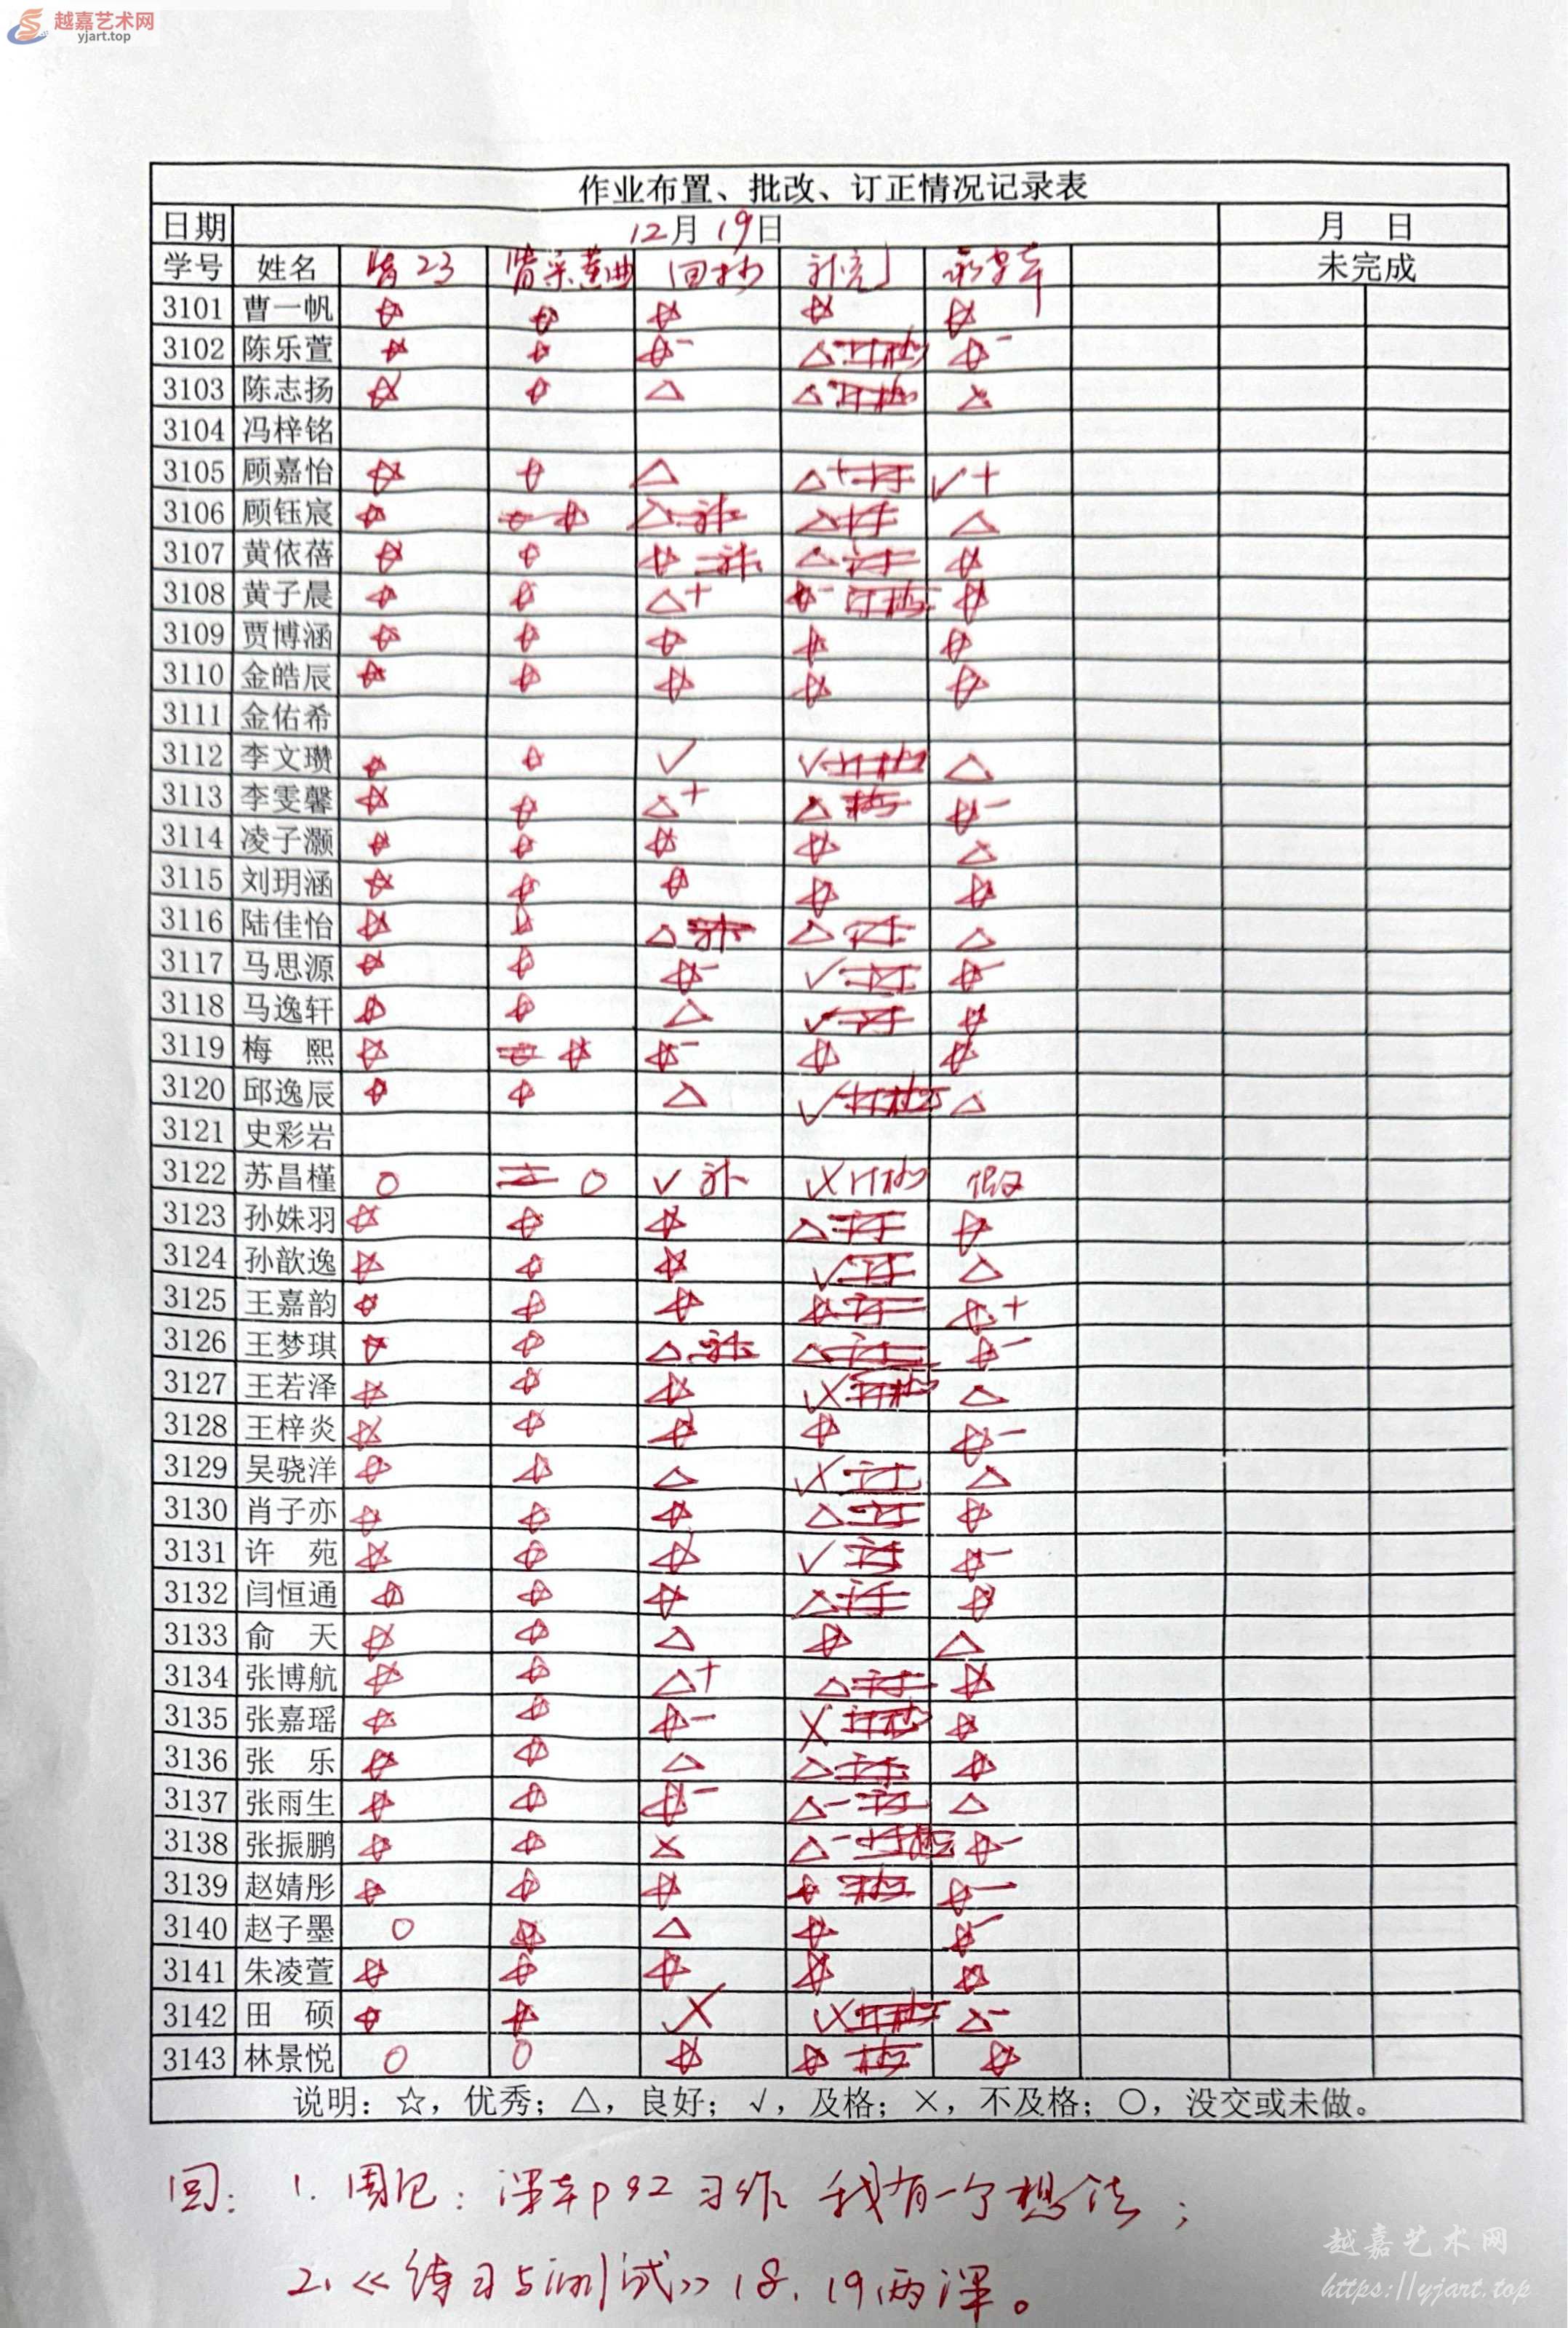 越嘉艺术网
yjart.top
作业布置、批改、订正情况记录表
日期 12月19日 月 日
学号 姓名 背23 背采薇曲 回抄 补充 未完成
3101 曹一帆 ☆ ☆ ☆ ☆ ☆
3102 陈乐萱 ☆ ☆ ☆- △ ☆-
3103 陈志扬 ☆ ☆ △ △ △
3104 冯梓铭
3105 顾嘉怡 ☆ ☆ △ △+ 订 √+
3106 顾钰宸 ☆ ☆ △ 补 △ 订 △
3107 黄依蓓 ☆ ☆ ☆ 补 △ 订 ☆
3108 黄子晨 ☆ ☆ △+ ☆- ☆
3109 贾博涵 ☆ ☆ ☆ ☆ ☆
3110 金皓辰 ☆ ☆ ☆ ☆ ☆
3111 金佑希
3112 李文瓒 ☆ ☆ √ √ △
3113 李雯馨 ☆ ☆ △+ △ ☆-
3114 凌子灏 ☆ ☆ ☆ ☆ △
3115 刘玥涵 ☆ ☆ ☆ ☆ ☆
3116 陆佳怡 ☆ ☆ △ 补 △ 订 △
3117 马思源 ☆ ☆ ☆- √ 订 ☆-
3118 马逸轩 ☆ ☆ △ √ 订 ☆
3119 梅 熙 ☆ ☆ ☆- ☆ ☆
3120 邱逸辰 ☆ ☆ △ √ △
3121 史彩岩
3122 苏昌槿 ○ ○ √ 补 假
3123 孙姝羽 ☆ ☆ ☆ △ 订 ☆
3124 孙歆逸 ☆ ☆ ☆ √ 订 △
3125 王嘉韵 ☆ ☆ ☆ ☆ 订 ☆+
3126 王梦琪 ☆ ☆ △ 补 △ 订 ☆-
3127 王若泽 ☆ ☆ ☆ △
3128 王梓炎 ☆ ☆ ☆ ☆ ☆-
3129 吴骁洋 ☆ ☆ △ 订 △
3130 肖子亦 ☆ ☆ ☆ △ 订 ☆
3131 许 苑 ☆ ☆ ☆ √ 订 ☆-
3132 闫恒通 ☆ ☆ ☆ △ 订 ☆
3133 俞 天 ☆ ☆ △ ☆ △
3134 张博航 ☆ ☆ △+ △ 订 ☆
3135 张嘉瑶 ☆ ☆ ☆- × ☆
3136 张 乐 ☆ ☆ △ △ 订 ☆
3137 张雨生 ☆ ☆ ☆- △- 订 △
3138 张振鹏 ☆ ☆ × △- ☆-
3139 赵婧彤 ☆ ☆ ☆ ☆ ☆-
3140 赵子墨 ○ ☆ △ ☆ ☆-
3141 朱凌萱 ☆ ☆ ☆ ☆ ☆
3142 田 硕 ☆ ☆ × △-
3143 林景悦 ○ ○ ☆ ☆ ☆
说明：☆，优秀；△，良好；√，及格；×，不及格；○，没交或未做。
回：1. 周记：课本P92 习作 我有一个想法；
2.《练习与测试》18、19两课。
越嘉艺术网
https://yjart.top